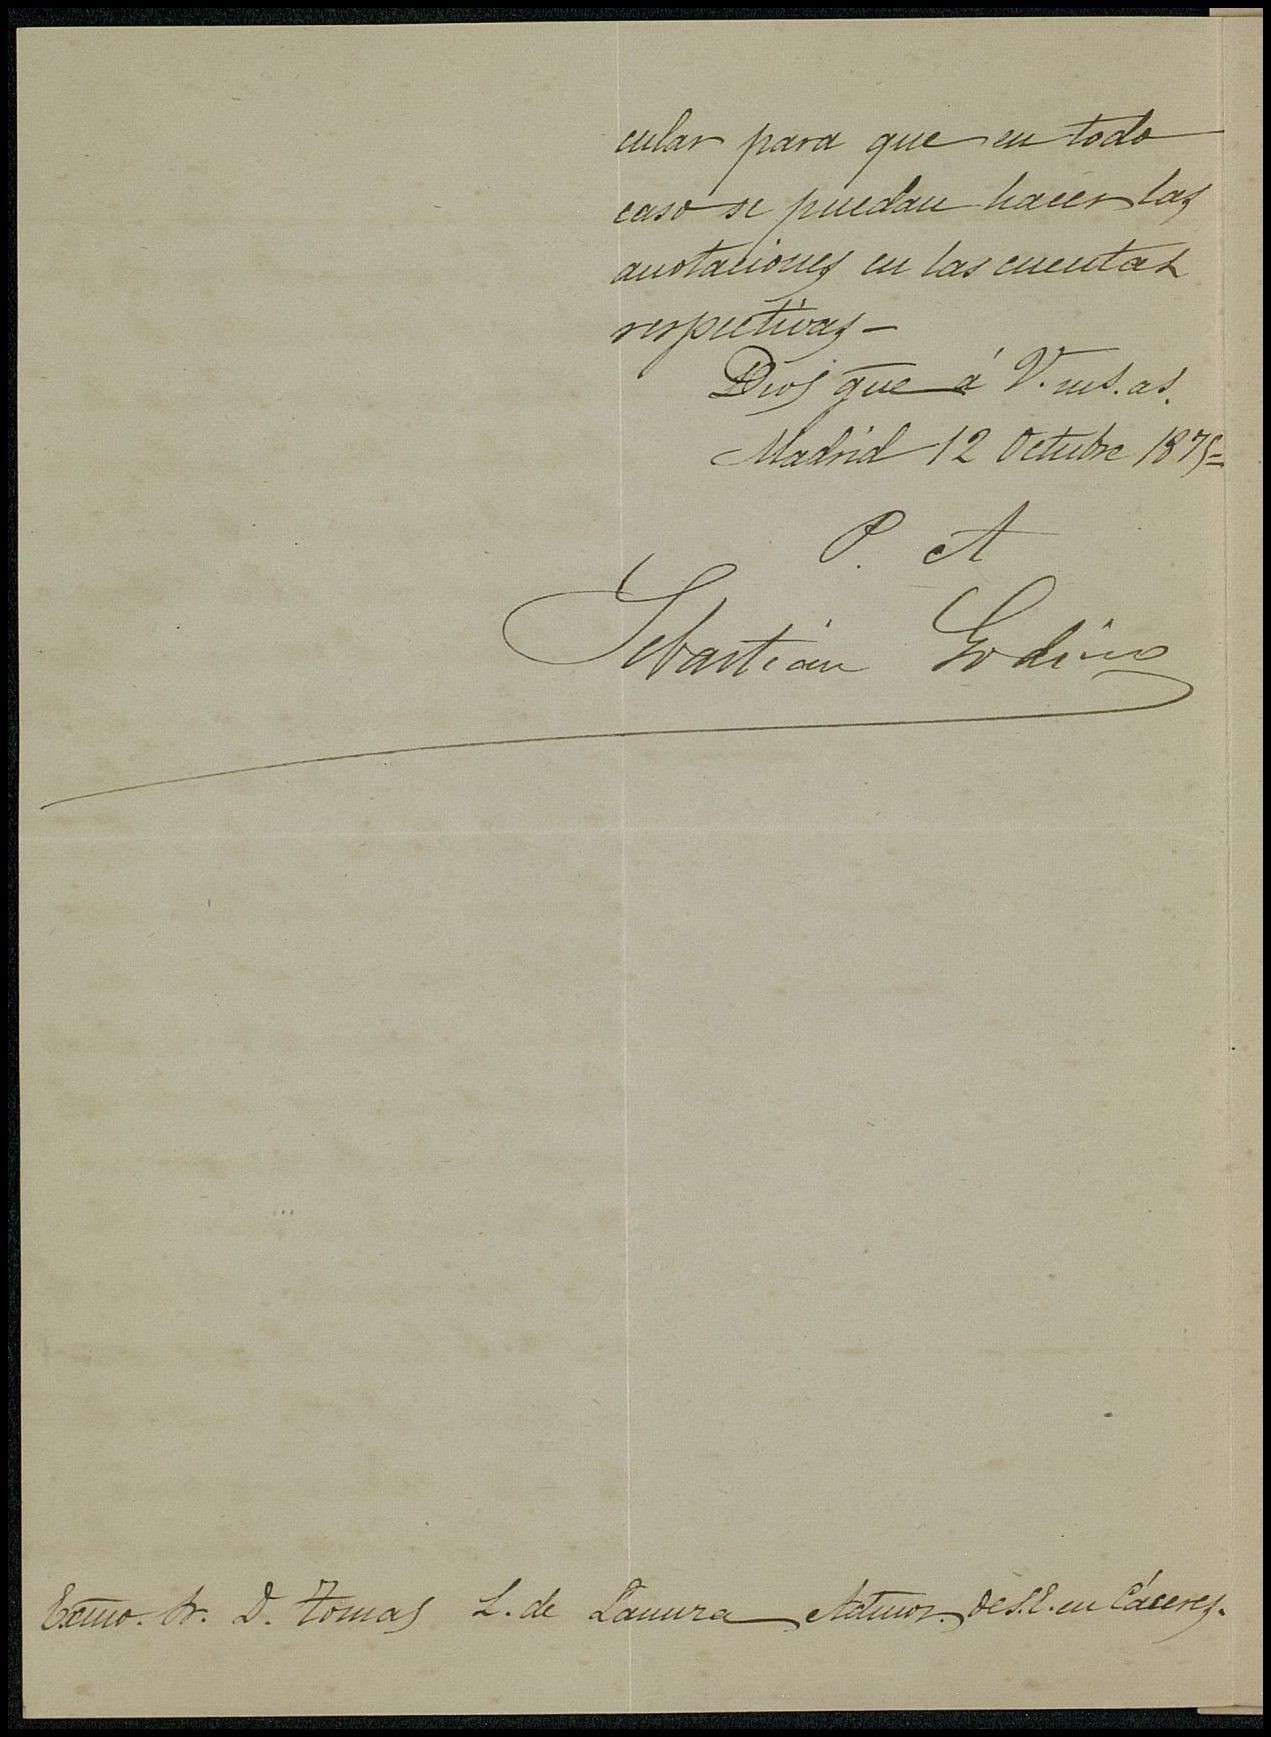 cular para que en todo
caso se puedan hacer las
anotaciones en las cuentas
respectivas—
Dios gue á V. ms. as.
Madrid 12 Octubre 1875=
P. A
Sebastián Godino
Exmo. Sr. D. Tomas L. de Admor. de S.E. en Cáceres.